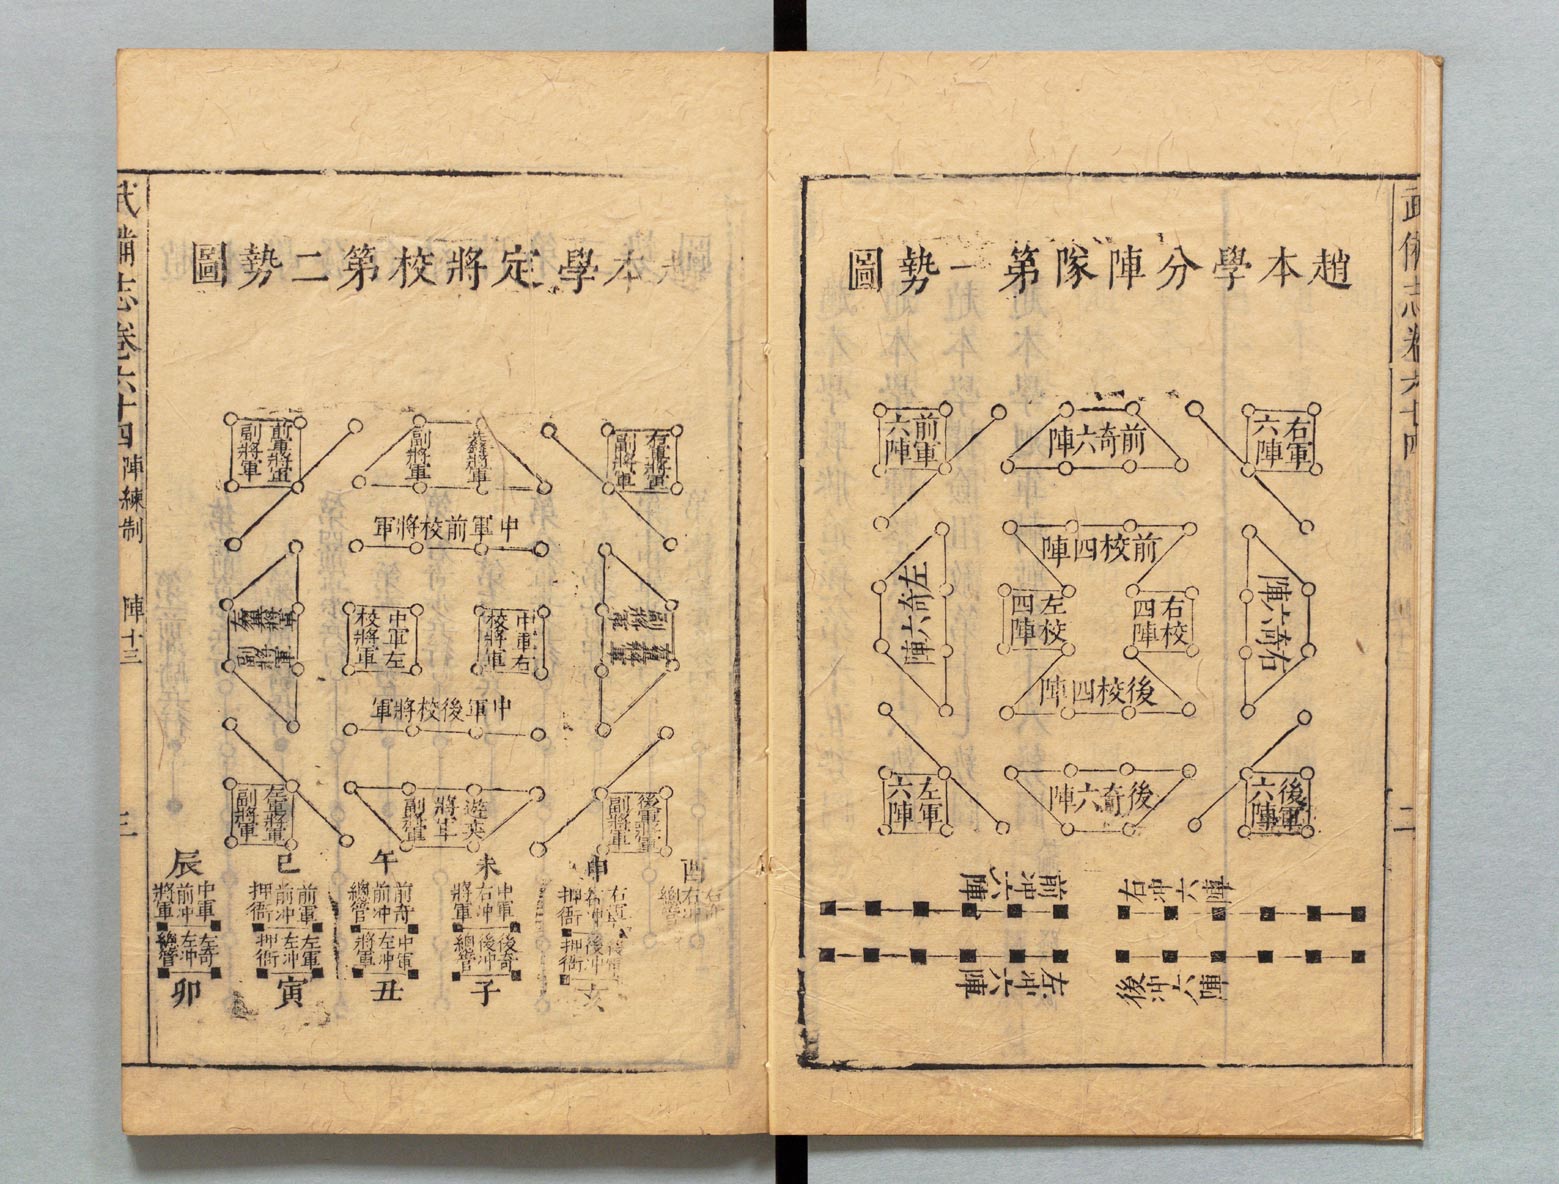 武備志卷六十四
二
趙本學分陣隊第一勢圖
右軍六陣
前奇六陣
前軍六陣
前校四陣
右奇六陣
右校四陣
左校四陣
左奇六陣
後校四陣
後軍六陣
後奇六陣
左軍六陣
右冲六陣
前冲六陣
後冲六陣
左冲六陣
本學定將校第二勢圖
右軍將軍副將軍
副將軍
前軍將軍副將軍
中軍前校將軍
副將軍
中軍右校將軍
中軍左校將軍
副將軍
中軍後校將軍
後軍將軍副將軍
遊奕將軍副將軍
左軍將軍副將軍
酉
申
未
午
巳
辰
右冲總管
右軍押衙
中軍右冲將軍
前奇前冲總管
前軍前冲押衙
中軍前冲將軍
後冲押衙
後奇後冲總管
中軍左冲將軍
左軍左冲押衙
左奇左冲總管
亥
子
丑
寅
卯
武備志卷六十四
陣練制
陣十三
三